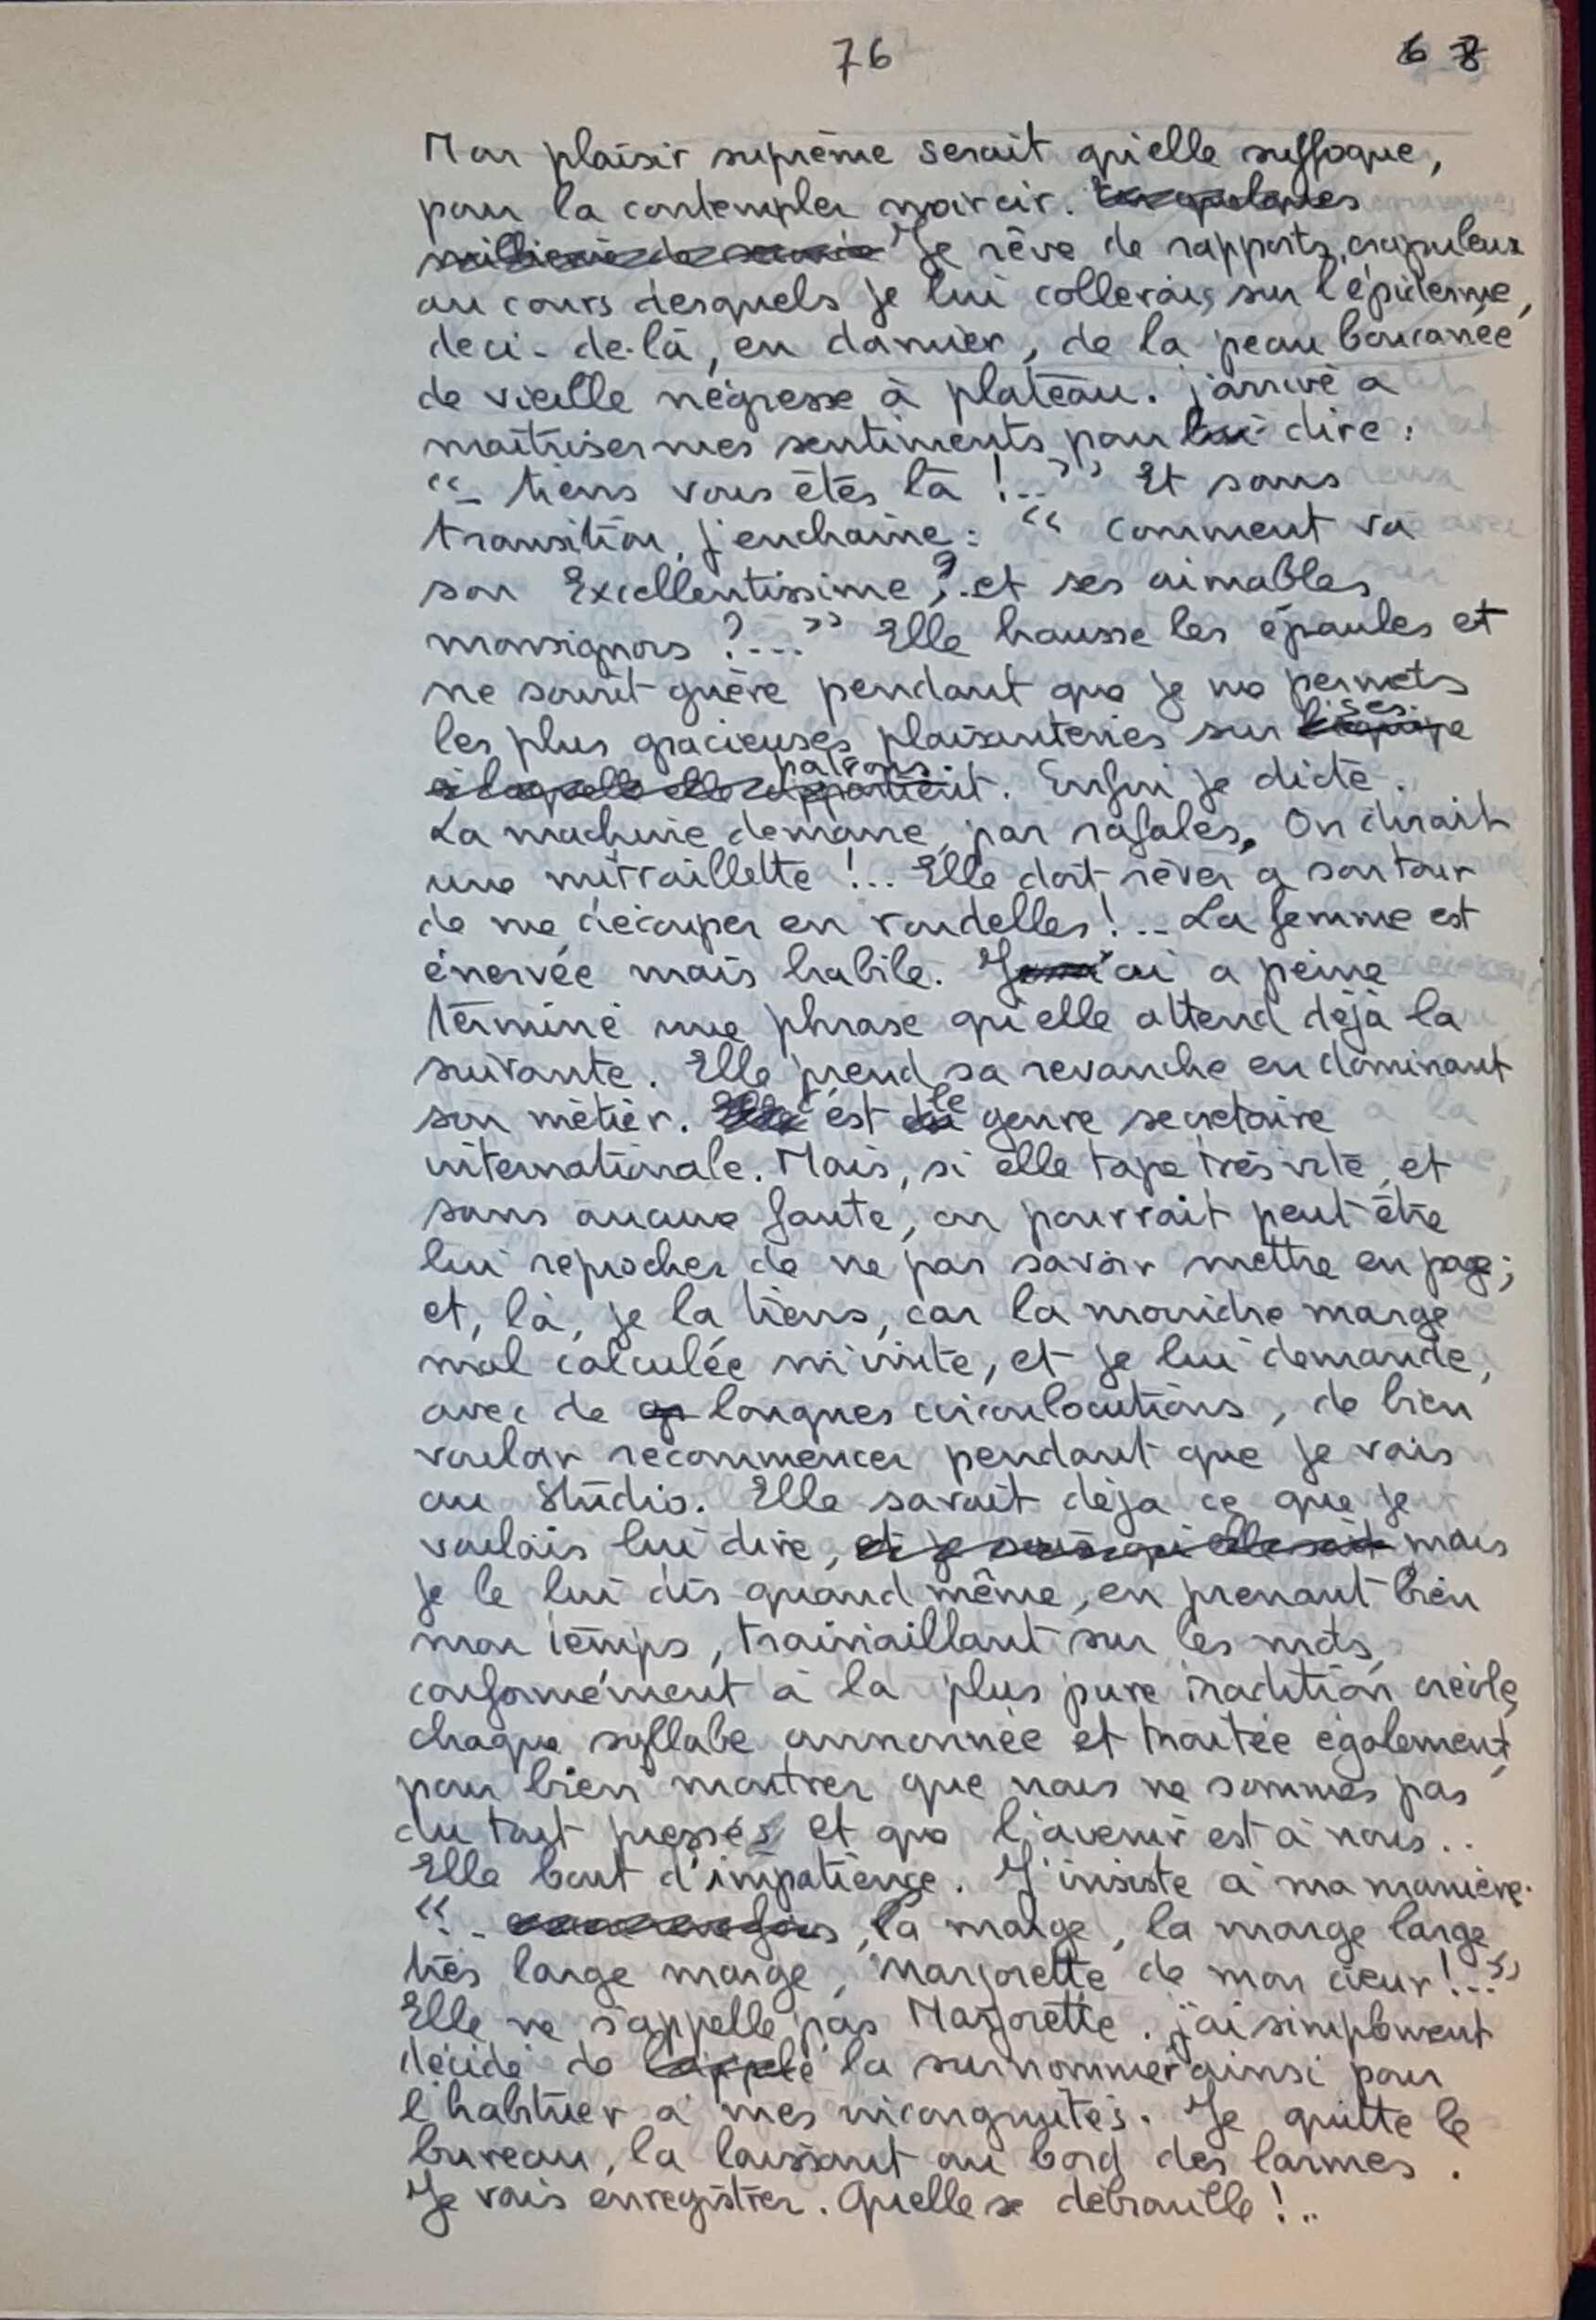 76
6 8
Mon plaisir suprême serait qu'elle suffoque,
pour la contempler noircir.
Je rêve de rapports crapuleux
au cours desquels je lui collerais, sur l'épiderme,
deci-de-là, en damier, de la peau boucanée
de vieille négresse à plateau. j'arrive à
maîtriser mes sentiments pour lui dire :
"– tiens vous êtes là !.." Et sans
transition, j'enchaine : " comment va
son Excellentissime ?.. et ses aimables
monsignors ?...." Elle hausse les épaules et
ne sourit guère pendant que je me permets
les plus gracieuses plaisanteries sur l'équipe ses
à laquelle elle appartient patrons. Enfin je dicte.
La machine démarre, par rafales. On dirait
une mitraillette !... Elle doit rêver à son tour
de me découper en rondelles !... La femme est
énervée mais habile. J'ai à peine
terminé une phrase qu'elle attend déjà la
suivante. Elle prend sa revanche en dominant
son métier. Elle c'est du le genre secrétaire
internationale. Mais, si elle tape très vite, et
sans aucune faute, on pourrait peut être
lui reprocher de ne pas savoir mettre en page ;
et, là, je la tiens, car la moindre marge
mal calculée m'irrite, et je lui demande,
avec de longues circonlocutions, de bien
vouloir recommencer pendant que je vais
au studio. Elle savait déjà ce que je
voulais lui dire, et je sais qu'elle sait mais
je le lui dis quand même, en prenant bien
mon temps, trainaillant sur les mots,
conformément à la plus pure tradition créole,
chaque syllabe annonnée et traitée également,
pour bien montrer que nous ne sommes pas
du tout pressés et que l'avenir est à nous..
Elle bout d'impatience. J'insiste à ma manière.
"– la marge, la marge large
très large marge, Marjorette de mon cœur !..."
Elle ne s'appelle pas Marjorette. j'ai simplement
décidé de l'appele la surnommer ainsi pour
l'habituer à mes incongruités. Je quitte le
bureau, la laissant au bord des larmes.
Je vais enregistrer. Quelle se débrouille !..